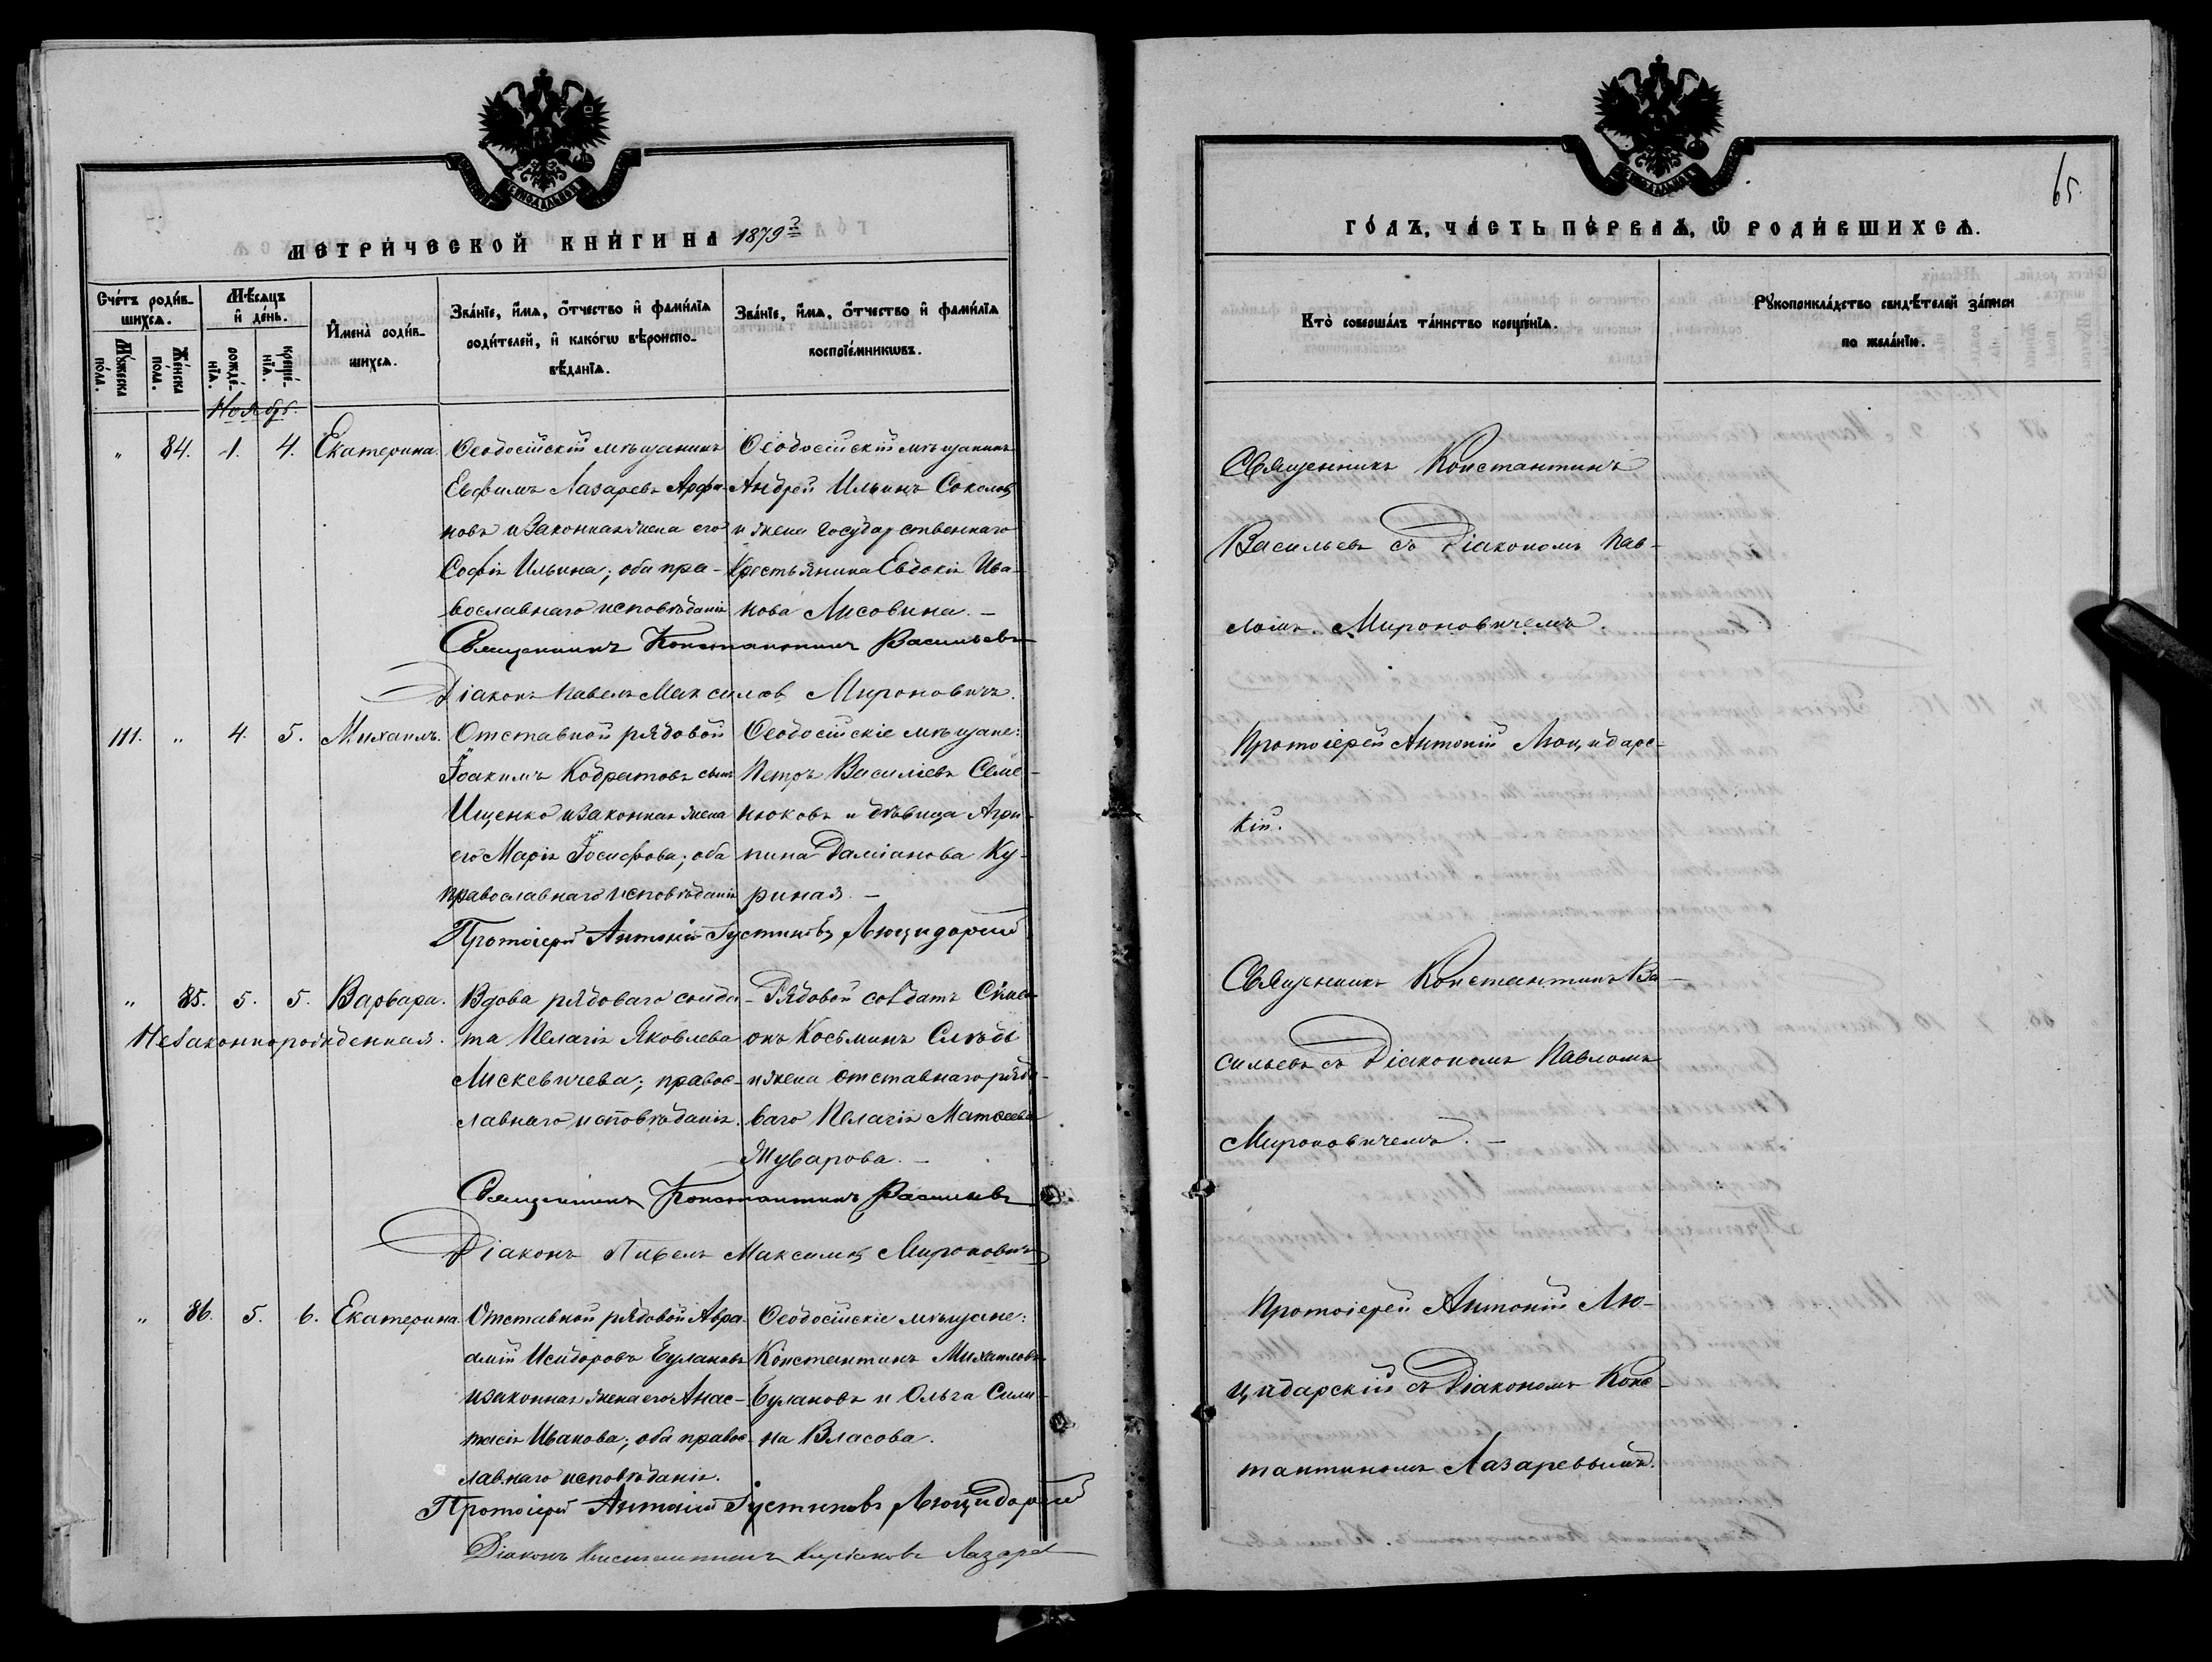 МЕТРИЧЕСКОЙ КНИГИ НА 1879 г
Счетъ родив-
шихся.
Мѣсяцъ
и день.
Имена родив-
шихся.
Званіе, имя, отчество и фамилія
родителей, и какогѡ вѣроиспо-
вѣданія.
Званіе, имя, отчество и фамилія
воспріемникѡвъ.
Мужеска
пола.
Женска
пола.
рожде-
нія.
креще-
нія.
Ноябрь.
" 84. 1. 4. Екатерина.
Ѳеодосійскій мѣщанинъ
Евфимъ Лазаревъ Арфа-
новъ и законная жена его
Софія Ильина; оба пра-
вославнаго исповѣданія
Ѳеодосійскій мѣщанинъ
Андрей Ильинъ Соколов
и жена государственнаго
крестьянина Евдокія Ива-
нова Лисовина. –
Священникъ Константинъ Васильевъ
Діаконъ Павелъ Максимов Мироновичъ.
111. " 4. 5. Михаилъ.
Отставной рядовой
Іоакимъ Кодратовъ сынъ
Ищенко и законная жена
его Марія Іосифова; оба
православнаго исповѣданія
Ѳеодосійскіе мѣщане:
Петръ Василіевъ Семе-
нюковъ и дѣвица Агри-
пина Даміанова Ку-
риная. –
Протоіерей Антоній Іустиновъ Люцидарскій
" 85. 5. 5. Варвара.
Незаконнорожденная.
Вдова рядоваго солда-
та Пелагія Яковлева
Лискевичева; правос-
лавнаго исповѣданія.
Рядовой солдатъ Симе-
онъ Косьминъ Слѣды
и жена отставнаго рядо-
ваго Пелагія Матѳеева
Жуварова. –
Священникъ Константинъ Васильевъ
Діаконъ Павелъ Максимов Мироновичъ
" 86. 5. 6. Екатерина.
Отставной рядовой Авра-
амій Исидоровъ Булановъ
и законная жена его Анас-
тасія Иванова; оба правос-
лавнаго исповѣданія.
Ѳеодосійскіе мѣщане:
Константинъ Михаиловъ
Булановъ и Ольга Сили-
на Власова.
Протоіерей Антоній Іустиновъ Люцидарскій
Діаконъ Константинъ Киріаковъ Лазарев
65.
ГОДЪ, ЧАСТЬ ПЕРВАЯ, Ѿ РОДИВШИХСЯ.
Кто совершалъ таинство крещенія.
Рукоприкладство свидѣтелей записи
по желанію.
Священникъ Константинъ
Васильевъ съ Діакономъ Пав-
ломъ Мироновичемъ
Протоіерей Антоній Люцидарс-
кій.
Священникъ Константинъ Ва-
сильевъ съ Діакономъ Павломъ
Мироновичемъ. –
Протоіерей Антоній Лю-
цидарскій съ Діакономъ Конс-
тантиномъ Лазаревымъ.